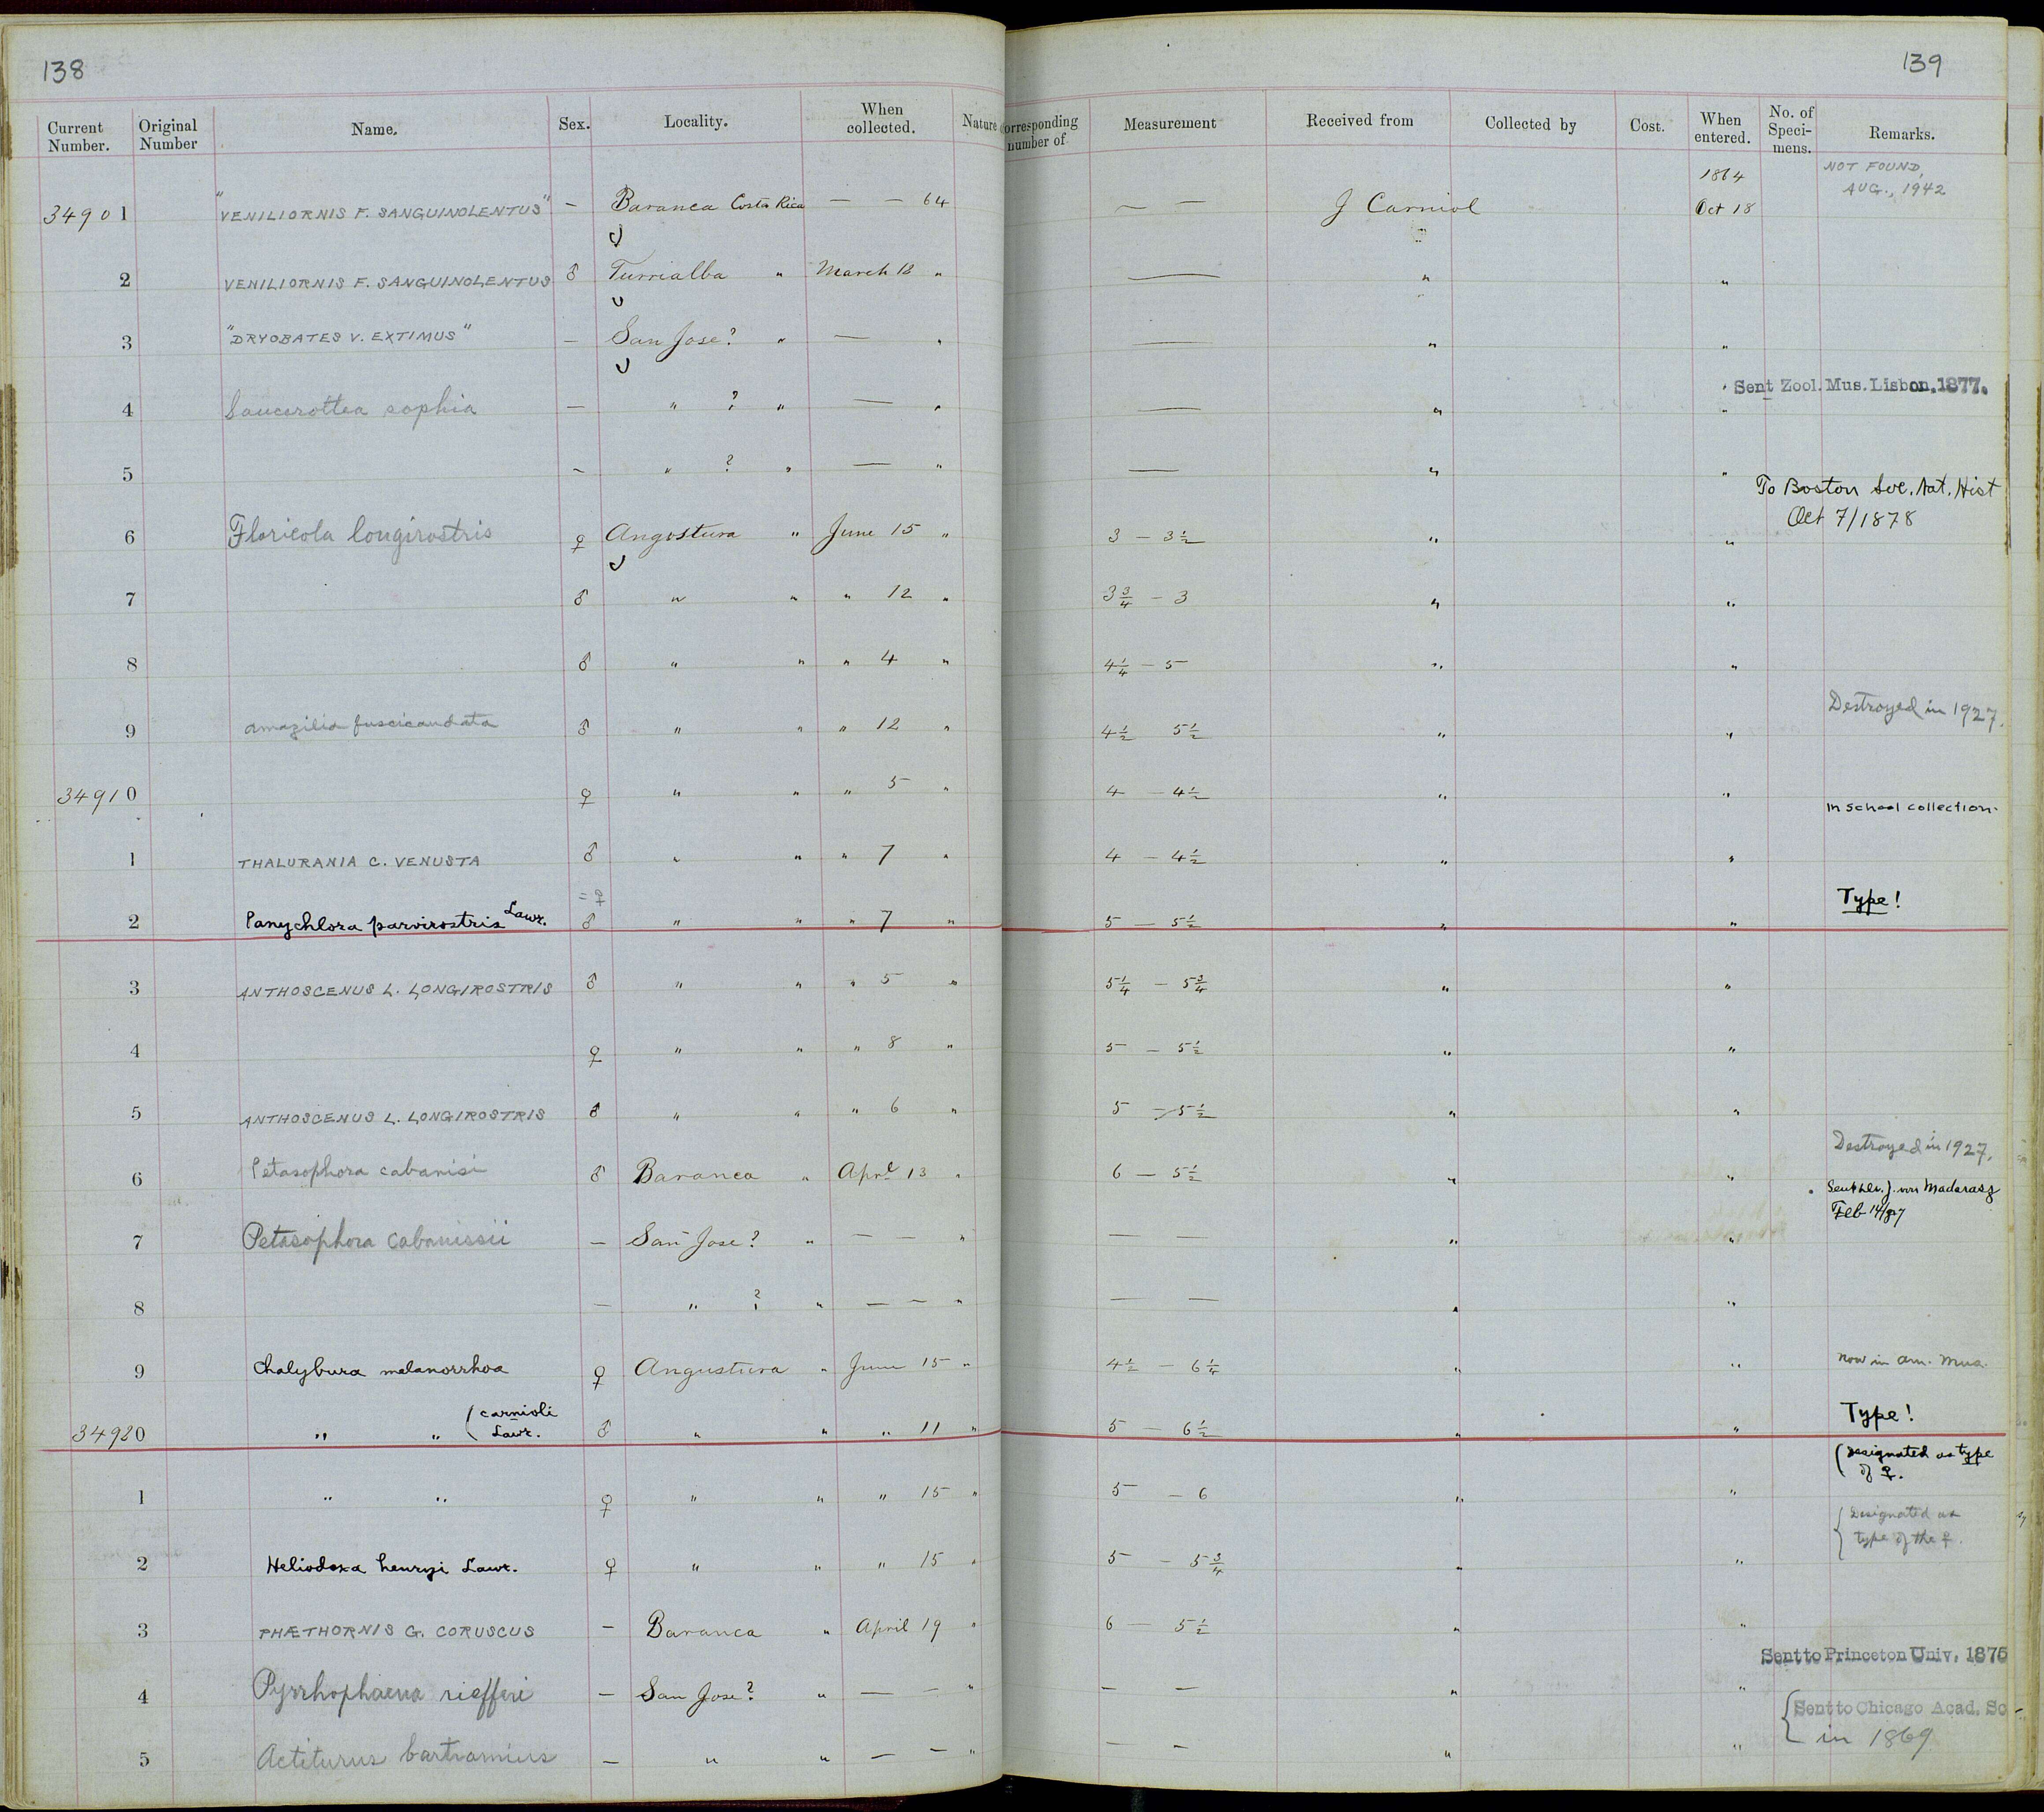 138
139
Current Number. Original Number Name. Sex. Locality. When collected. Nature
orresponding number of Measurement Received from Collected by Cost. When entered. No. of Speci-mens. Remarks.
34901 "VENILIORNIS F. SANGUINOLENTUS" — Baranca Costa Rica — — 64 — — J Carniol 1864 Oct 18 NOT FOUND, AUG., 1942
2 VENILIORNIS F. SANGUINOLENTUS ♂ Turrialba " March 12 " — " "
3 "DRYOBATES V. EXTIMUS" — San Jose? " — " — " "
4 Saucerottea sophia — " ? " — " — " " Sent Zool. Mus. Lisbon. 1877.
5 — " ? " — " — " "
6 Floricola longirostris ♀ Angostura " June 15 " 3 — 3½ " " To Boston Soc. Nat. Hist Oct 7/1878
7 ♂ " " " 12 " 3¾ — 3 " "
8 ♂ " " " 4 " 4¼ — 5 " "
9 Amazilia fuscicaudata ♂ " " " 12 " 4½ 5½ " " Destroyed in 1927.
34910 ♀ " " " 5 " 4 — 4½ " " In school collection.
1 THALURANIA C. VENUSTA ♂ " " " 7 " 4 — 4½ " "
= ♀
2 Panychlora parvirostris Lawr. ♂ " " " 7 " 5 — 5½ " " Type!
3 ANTHOSCENUS L. LONGIROSTRIS ♂ " " " 5 " 5¼ — 5¾ " "
4 ♀ " " " 8 " 5 — 5½ " "
5 ANTHOSCENUS L. LONGIROSTRIS ♂ " " " 6 " 5 — 5½ " "
6 Petasophora cabanisi ♂ Baranca " April 13 " 6 — 5½ " " Destroyed in 1927.
7 Petasophora cabanissii — San Jose? " — — " — — " " Sent Dr. J. von Madarasz Feb 14/87
8 — " ? " — — " — — " "
9 Chalybura melanorrhoa ♀ Angustura " June 15 " 4½ — 6¼ " " now in Am. Mus.
34920 " " (carnioli Lawr. ♂ " " " 11 " 5 — 6½ " " Type!
1 " " ♀ " " " 15 " 5 — 6 " " (Designated as type of ♀.
2 Heliodoxa henryi Lawr. ♀ " " " 15 " 5 — 5¾ " " {Designated as type of the ♀.
3 PHÆTHORNIS G. CORUSCUS — Baranca " April 19 " 6 — 5½ " "
4 Pyrrhophaena riefferi — San Jose? " — — " — — " " Sent to Princeton Univ. 1875
5 Actiturus bartramius — " " — — " — — " " {Sent to Chicago Acad. Sc in 1869